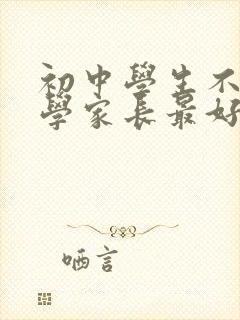 初中學生不
學家長最好
哂言